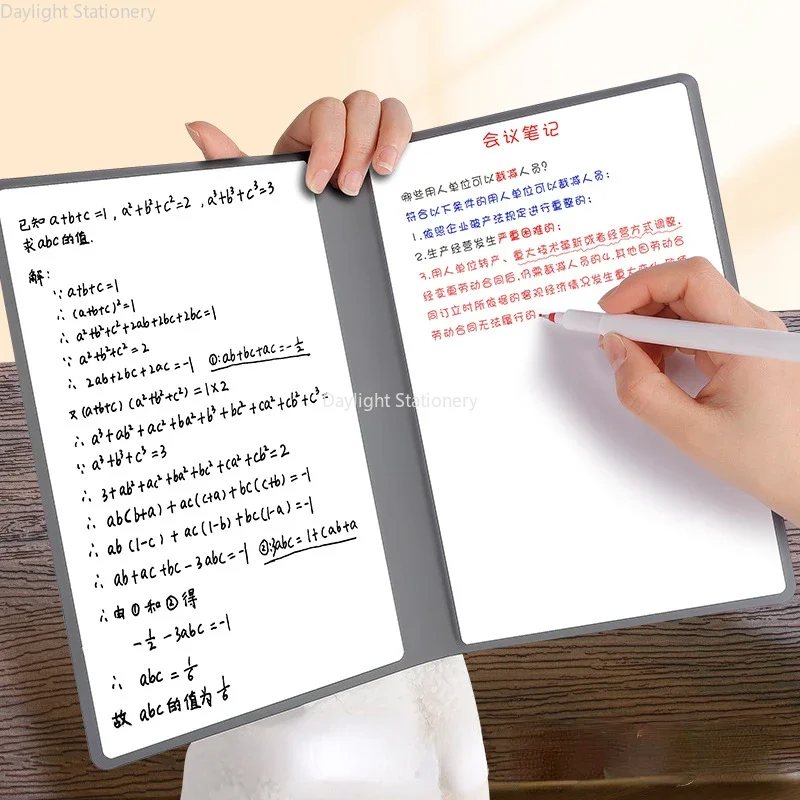 Daylight Stationery
已知 a+b+c=1, a²+b²+c²=2, a³+b³+c³=3
求abc的值.
解:
∵ a+b+c=1
∴ (a+b+c)²=1
∴ a²+b²+c²+2ab+2bc+2bc=1
∵ a²+b²+c²=2
∴ 2ab+2bc+2ac=-1 ①:ab+bc+ac=-1/2
又(a+b+c)(a²+b²+c²)=1×2
∴ a³+ab²+ac²+ba²+b³+bc²+ca²+cb²+c³=
∵ a³+b³+c³=3
∴ 3+ab²+ac²+ba²+bc²+ca²+cb²=2
∴ ab(b+a)+ac(c+a)+bc(c+b)=-1
∴ ab(1-c)+ac(1-b)+bc(1-a)=-1
∴ ab+ac+bc-3abc=-1 ②:3abc=1+(ab+a
∴由①和②得
-1/2-3abc=-1
∴ abc=1/6
故 abc的值为1/6
会议笔记
哪些用人单位可以裁减人员?
符合以下条件的用人单位可以裁减人员:
1.依照企业破产法规定进行重整的;
2.生产经营发生严重困难的;
3.用人单位转产、重大技术革新或者经营方式调整,
经变更劳动合同后,仍需裁减人员的4.其他因劳动合
同订立时所依据的客观经济情况发生重大变化,
劳动合同无法履行的
Daylight Stationery